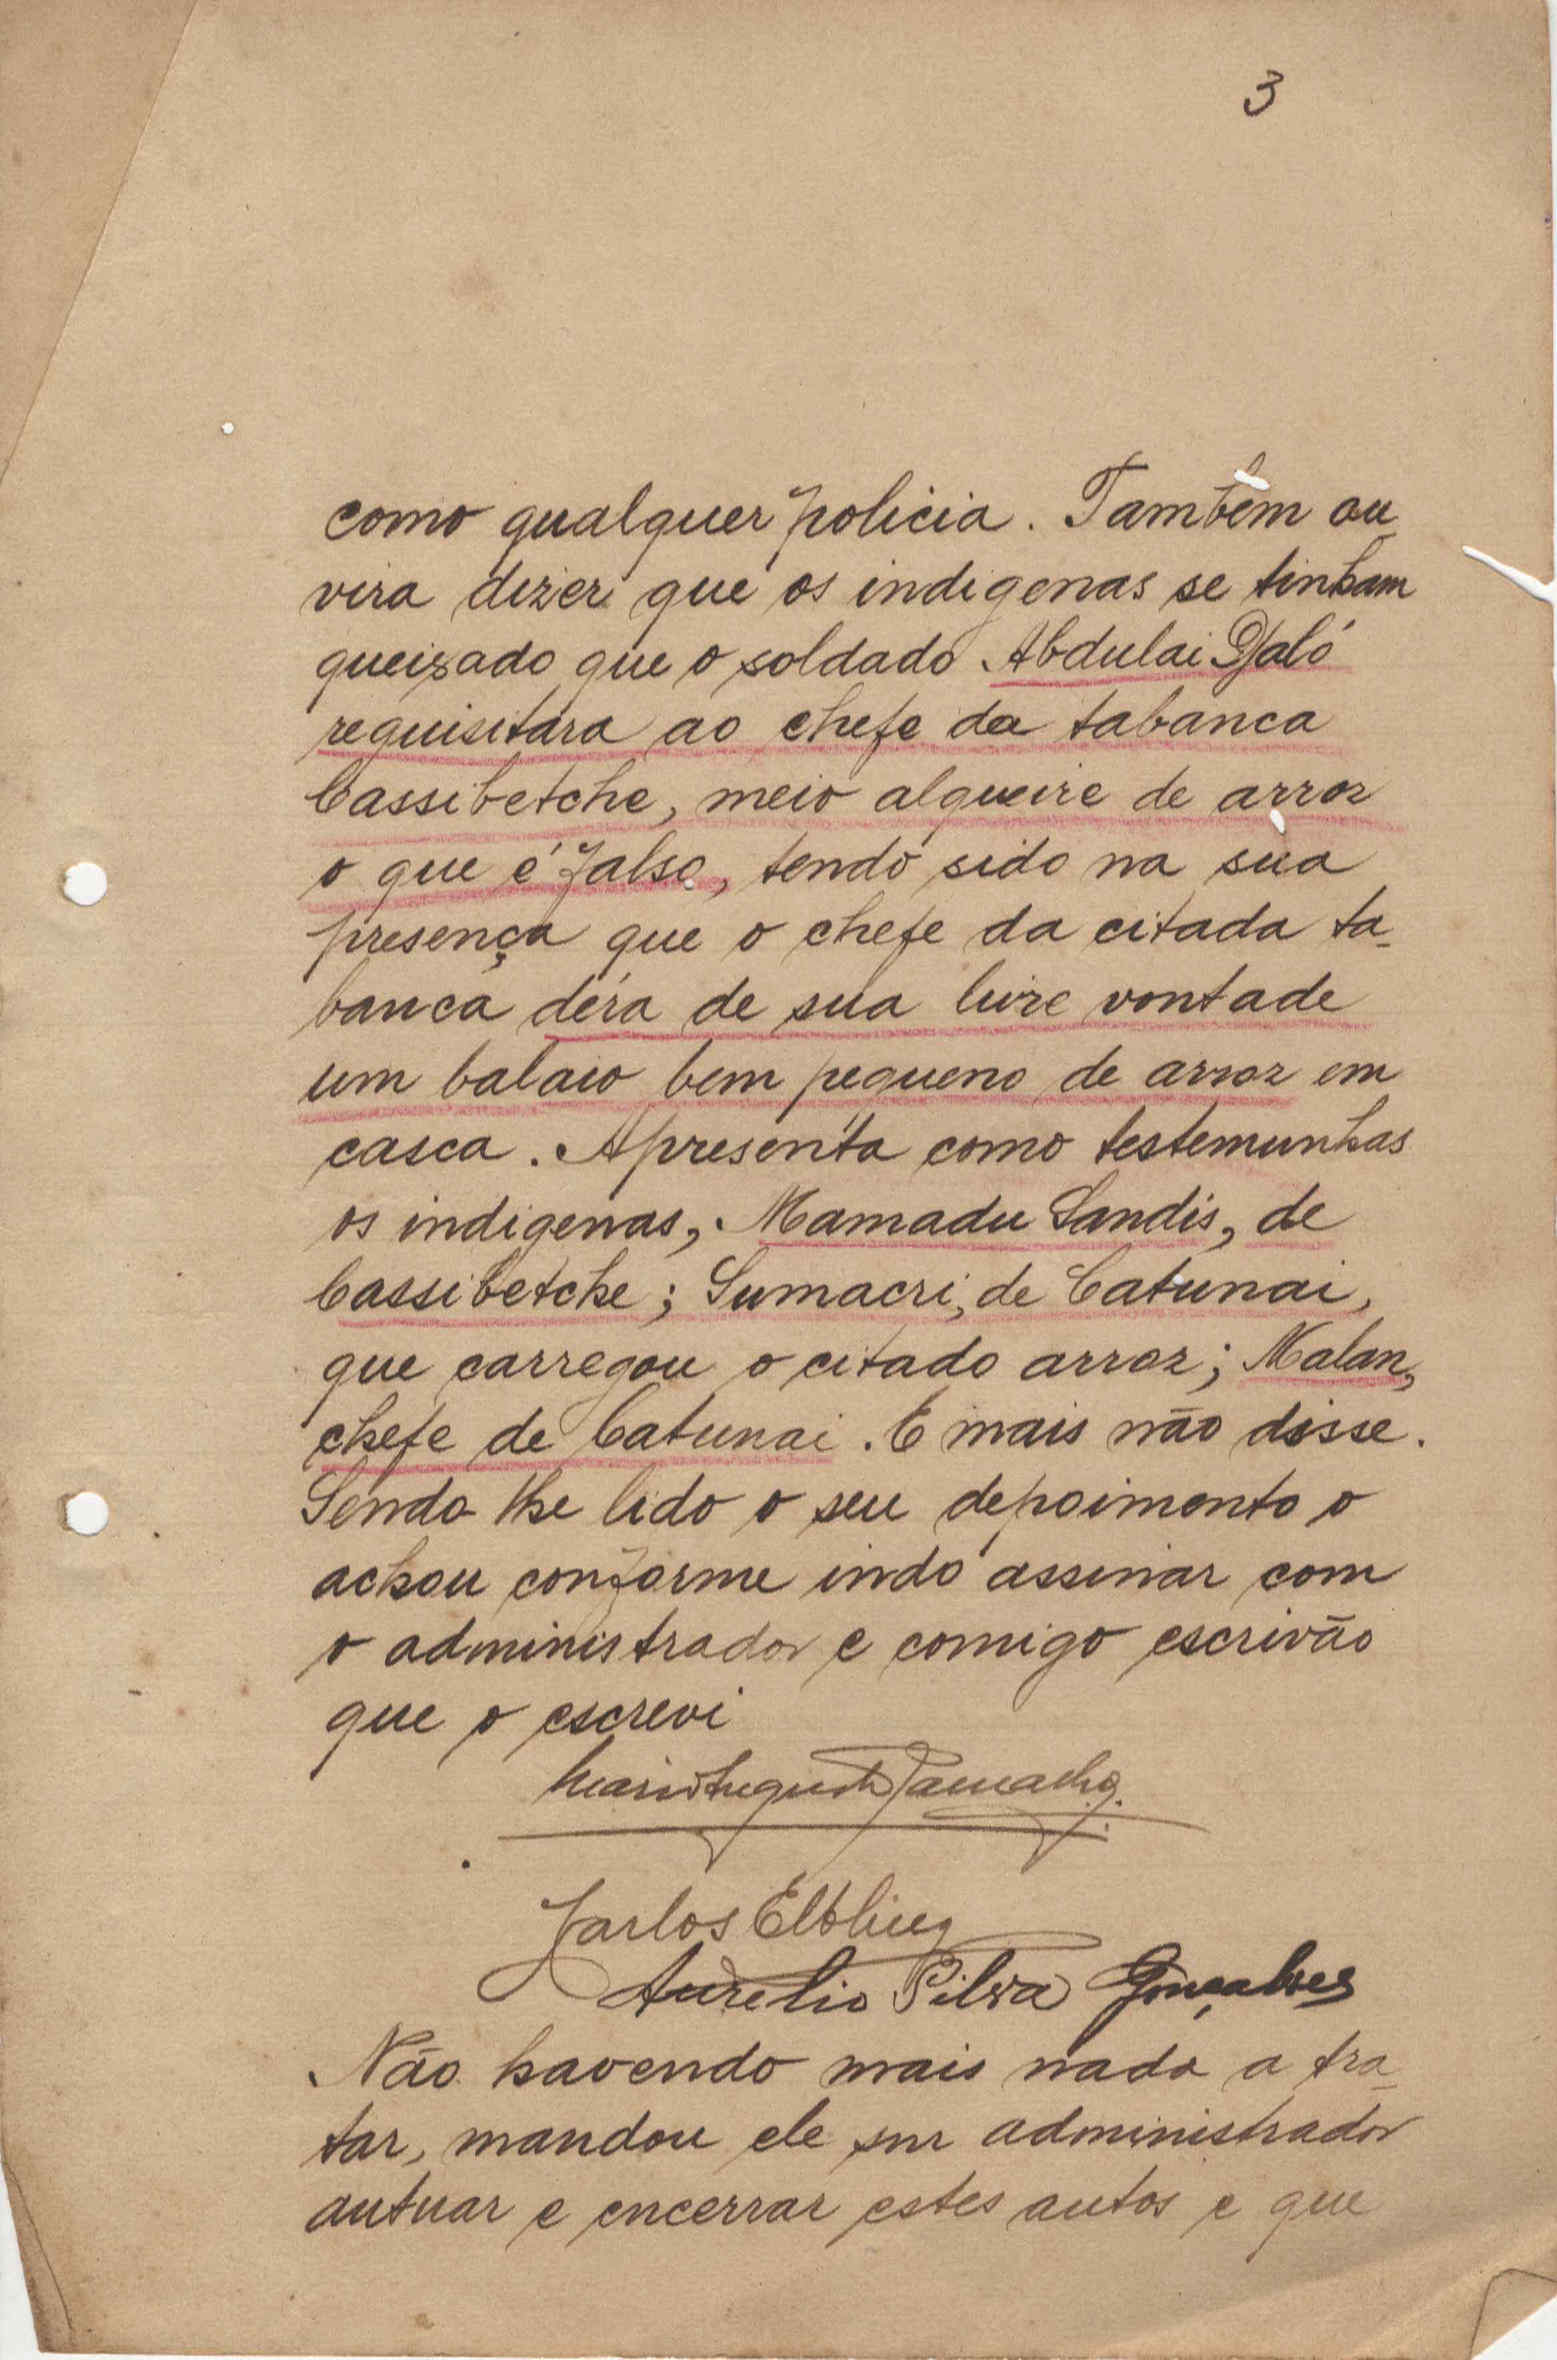 3
como qualquer policia. Também ou-
vira dizer que os indigenas se tinham
queixado que o soldado Abdulai Djaló
requisitára ao chefe da tabanca
Cassibetche, meio alqueire de arroz
o que é falso, tendo sido na sua
presença que o chefe da citada ta-
banca déra de sua livre vontade
um balaio bem pequeno de arroz em
casca. Apresenta como testemunhas
os indigenas, Mamadu Sandis, de
Cassibetche; Sumacri, de Catunai,
que carregou o citado arroz; Malan,
chefe de Catunai. E mais não disse.
Sendo-lhe lido o seu depoimento o
achou conforme indo assinar com
o administrador e comigo escrivão
que o escrevi
Mario Augusto Camacho.
Carlos Elbling
Aurelio Silva Gonçalves
Não havendo mais nada a tra-
tar, mandou ele snr administrador
autuar e encerrar estes autos e que